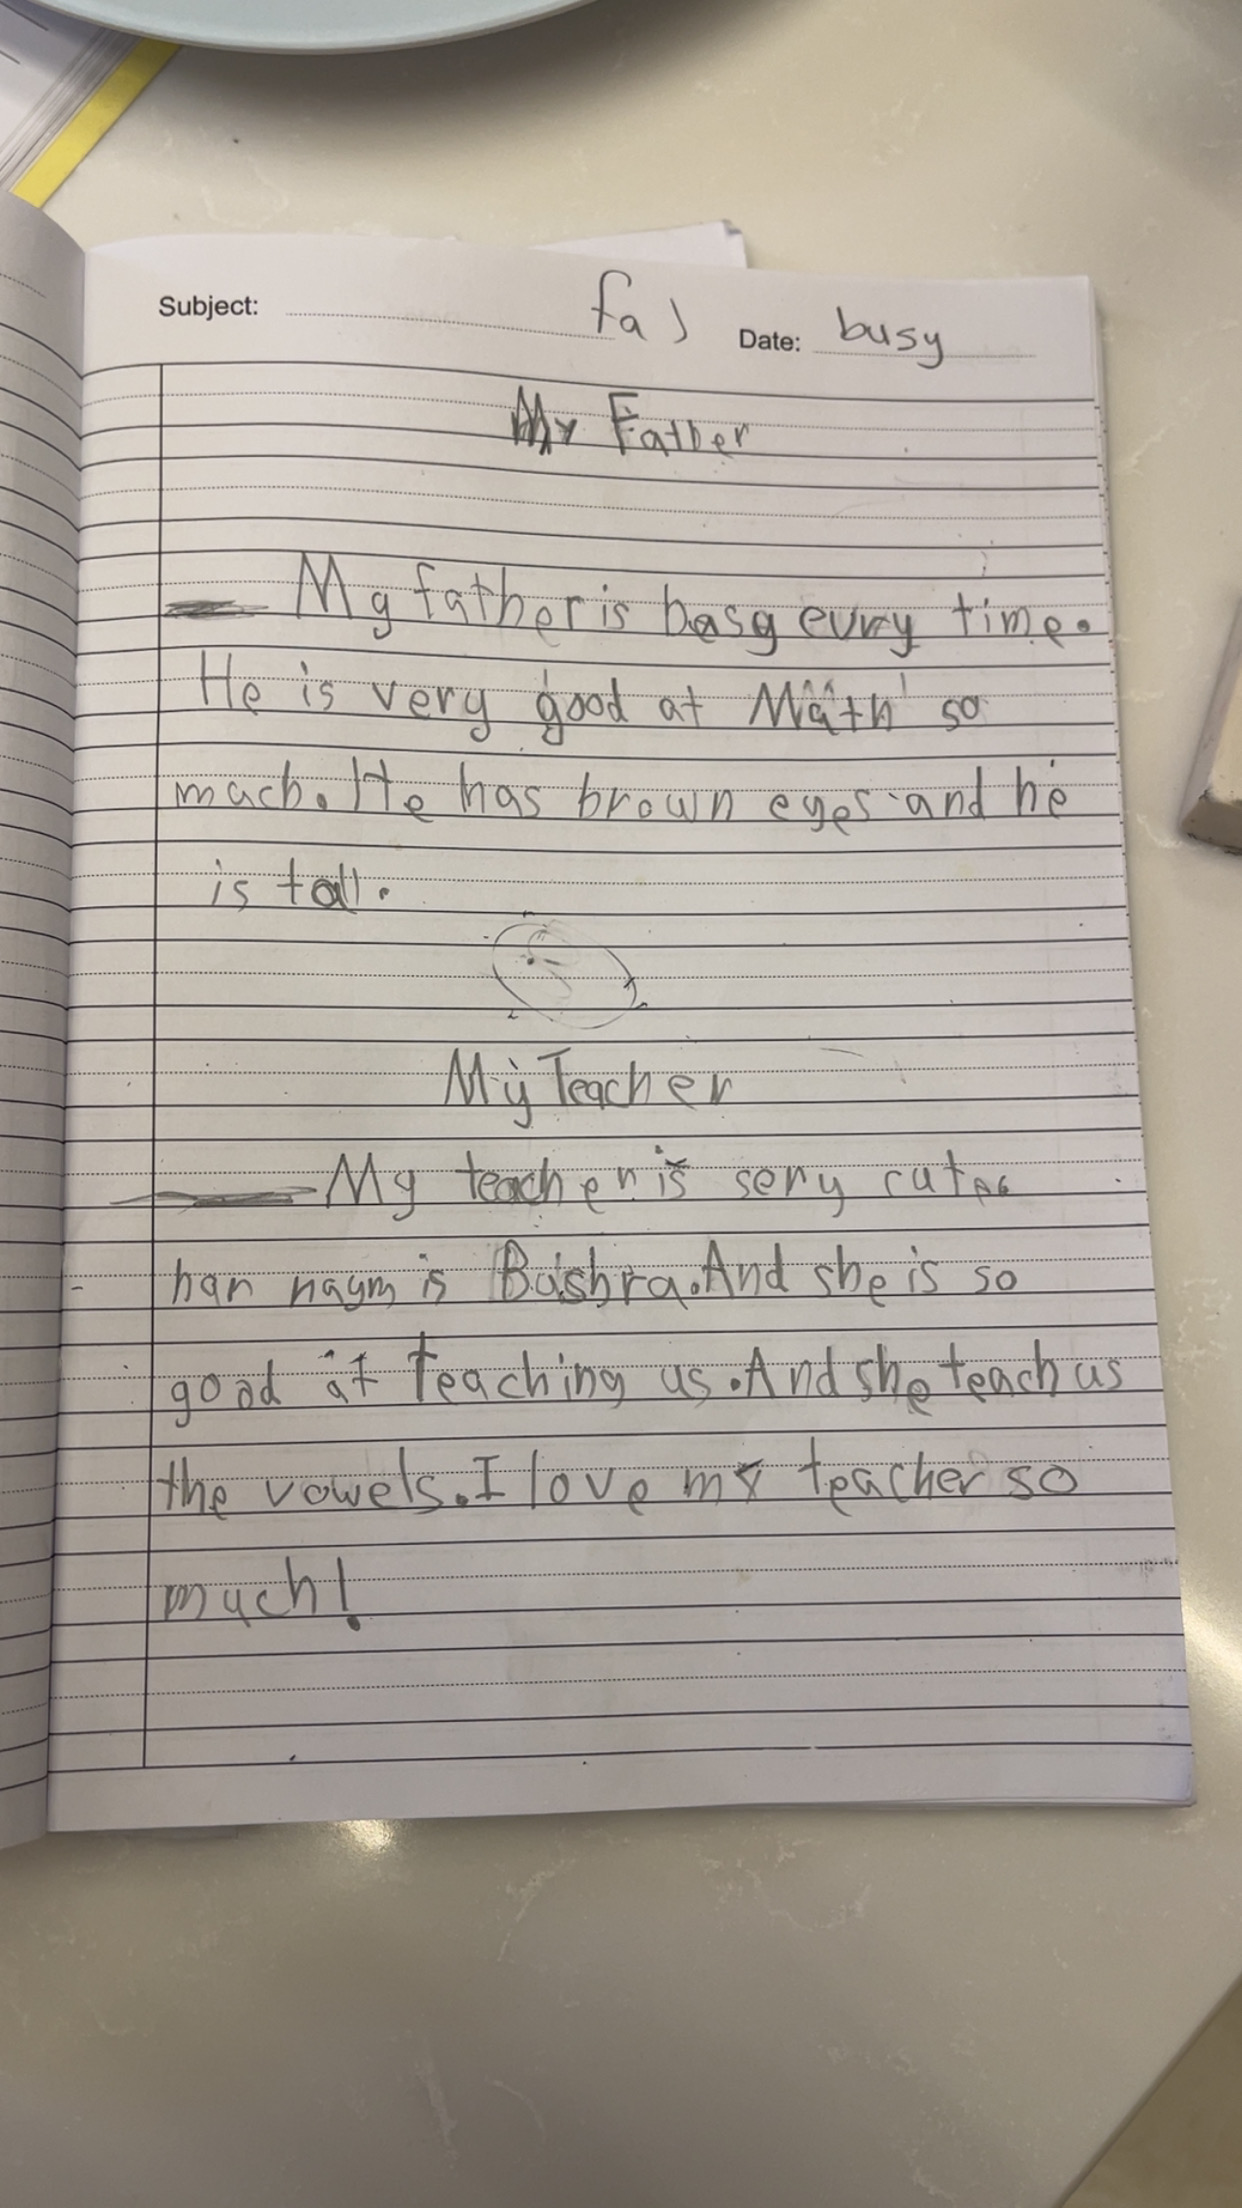 Subject: fa
Date: busy
My Father
My father is basy eury time.
He is very good at Math so
mach. He has brown eyes and he
is tall.
My Teacher
My teacher is sery cute
han naym is Bushra. And she is so
good at Teaching us. And she teach us
the vowels. I love my teacher so
much!